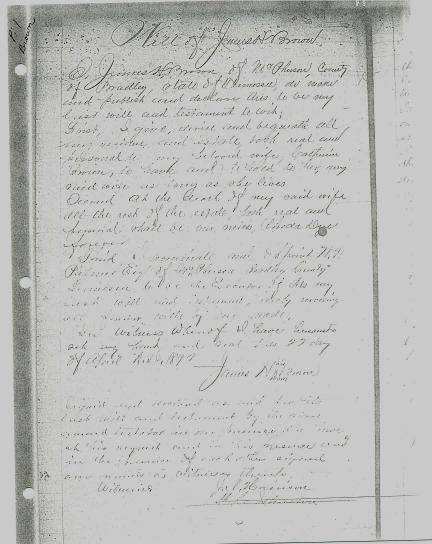 P. 1
Brown
Will of James H. Brown
I, James H. Brown, of McPherson, County
of Bradley, State of Tennessee, do make
and publish and declare this to be my
last will and testament to wit;
First, I give, devise and bequeath all
my and estate, both real and
personal to my beloved wife, Catherine
Brown, to have and to hold to her my
said wife as long as she lives
Second At the death of my said wife
all the rest of the estate both real and
personal shall be my
forever
Third I nominate and appoint W. H.
Esq of Bradley County
Tennessee to be the Executor of this my
last will and testament, hereby revoking
all former wills by me made.
In Witness Whereof I have hereunto
set my hand and seal this 27 day
of April A.D. 189
James H his mark Brown
Signed and as and for his
last will and testament by the above
named testator in our presence
at his request and in his presence and
in the presence of each other signed
our names as witnesses thereto
Witness
J. Harrison